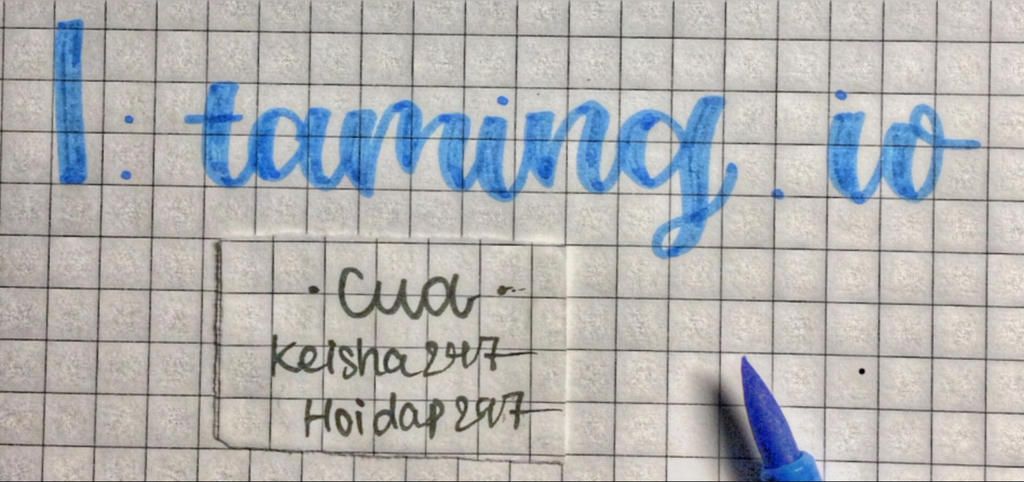 1 : taming . io
. Cua .
Keisha247
Hoidap247